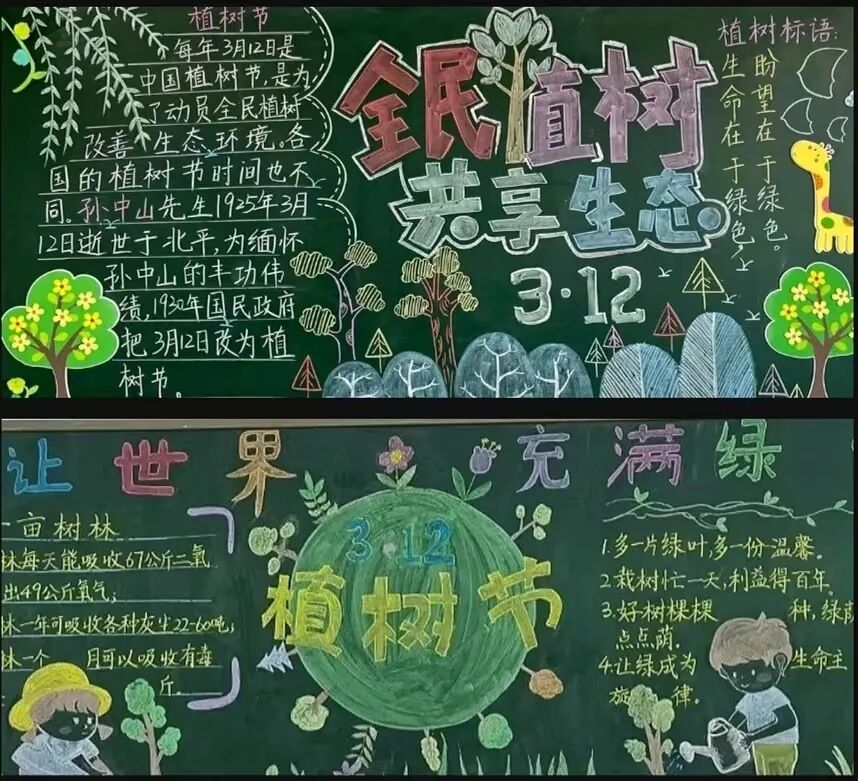 植树节
每年3月12日是
中国植树节,是为
了动员全民植树
改善 生态环境。各
国的植树节时间也不
同。孙中山先生1925年3月
12日逝世于北平,为缅怀
孙中山的丰功伟
绩,1930年国民政府
把3月12日改为植
树节。
全民植树
共享生态。
3·12
植树标语:
盼望在于绿色。
生命在于绿色,
让世界充满绿
一亩树林
林每天能吸收67公斤二氧
出49公斤氧气;
林一年可吸收各种灰尘22-60吨;
林一个 月可以吸收有毒
斤。
3·12
植树节
1.多一片绿叶,多一份温馨。
2.栽树忙一天,利益得百年。
3.好树棵棵 种,绿荫
点点荫.
4.让绿成为 生命主
旋 律。